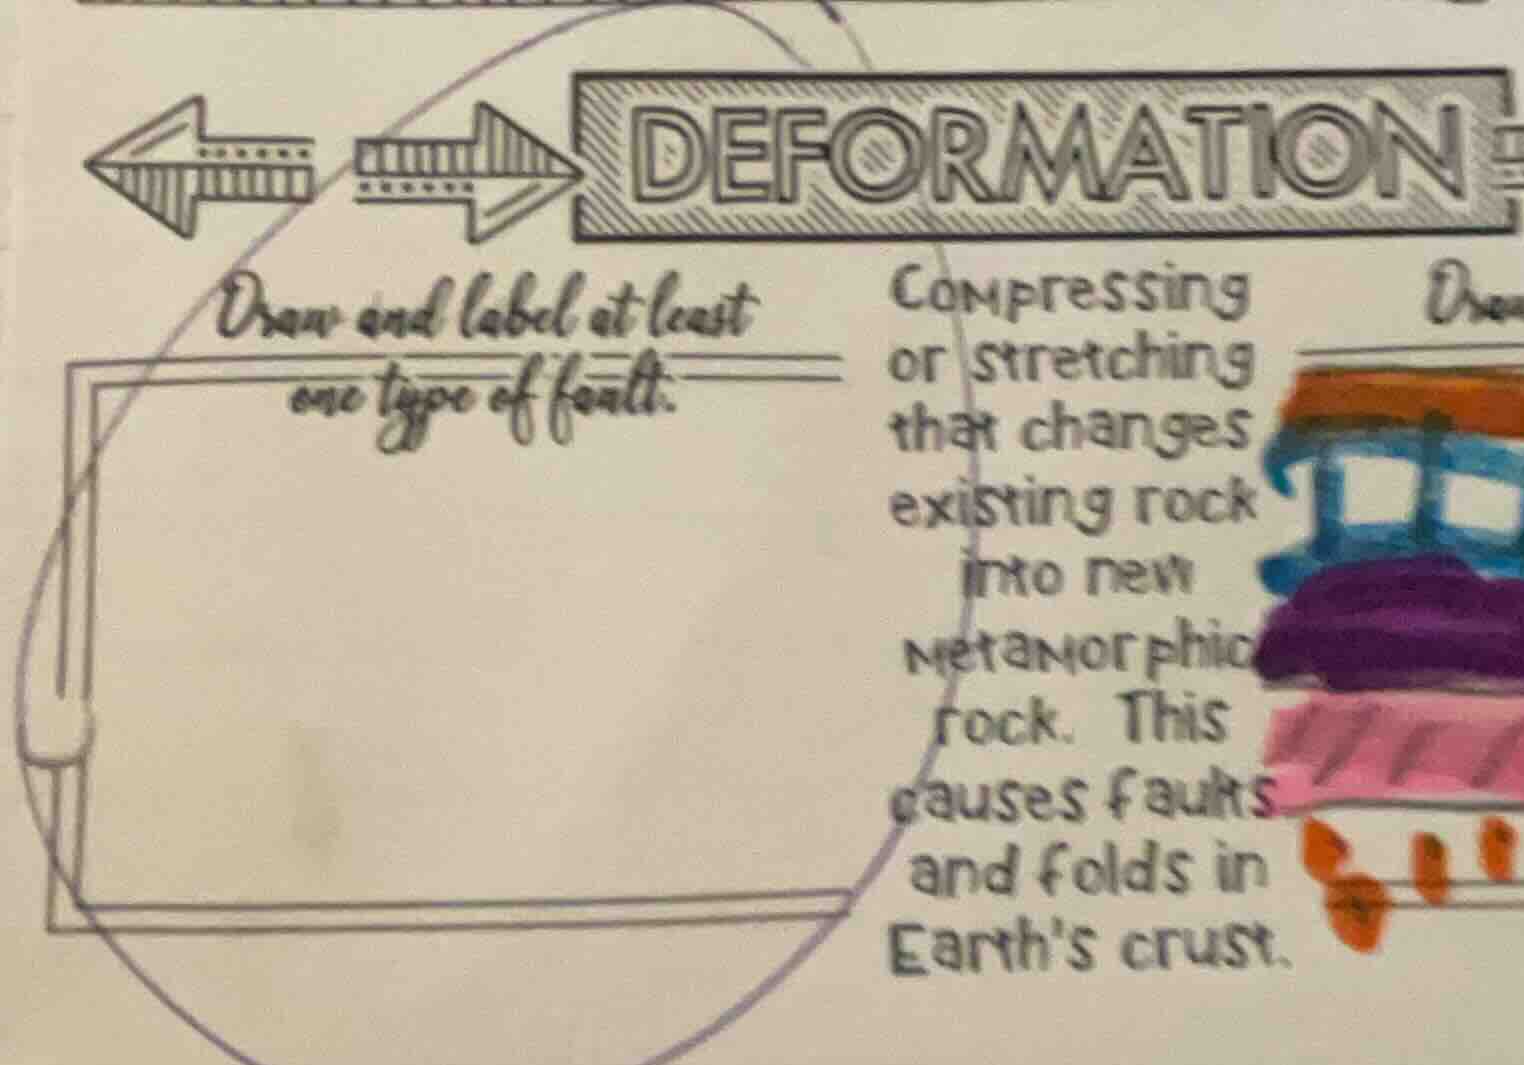 DEFORMATION
Draw and label at least
one type of fault.
Compressing
or stretching
that changes
existing rock
into new
metamorphic
rock. This
causes faults
and folds in
Earth's crust.